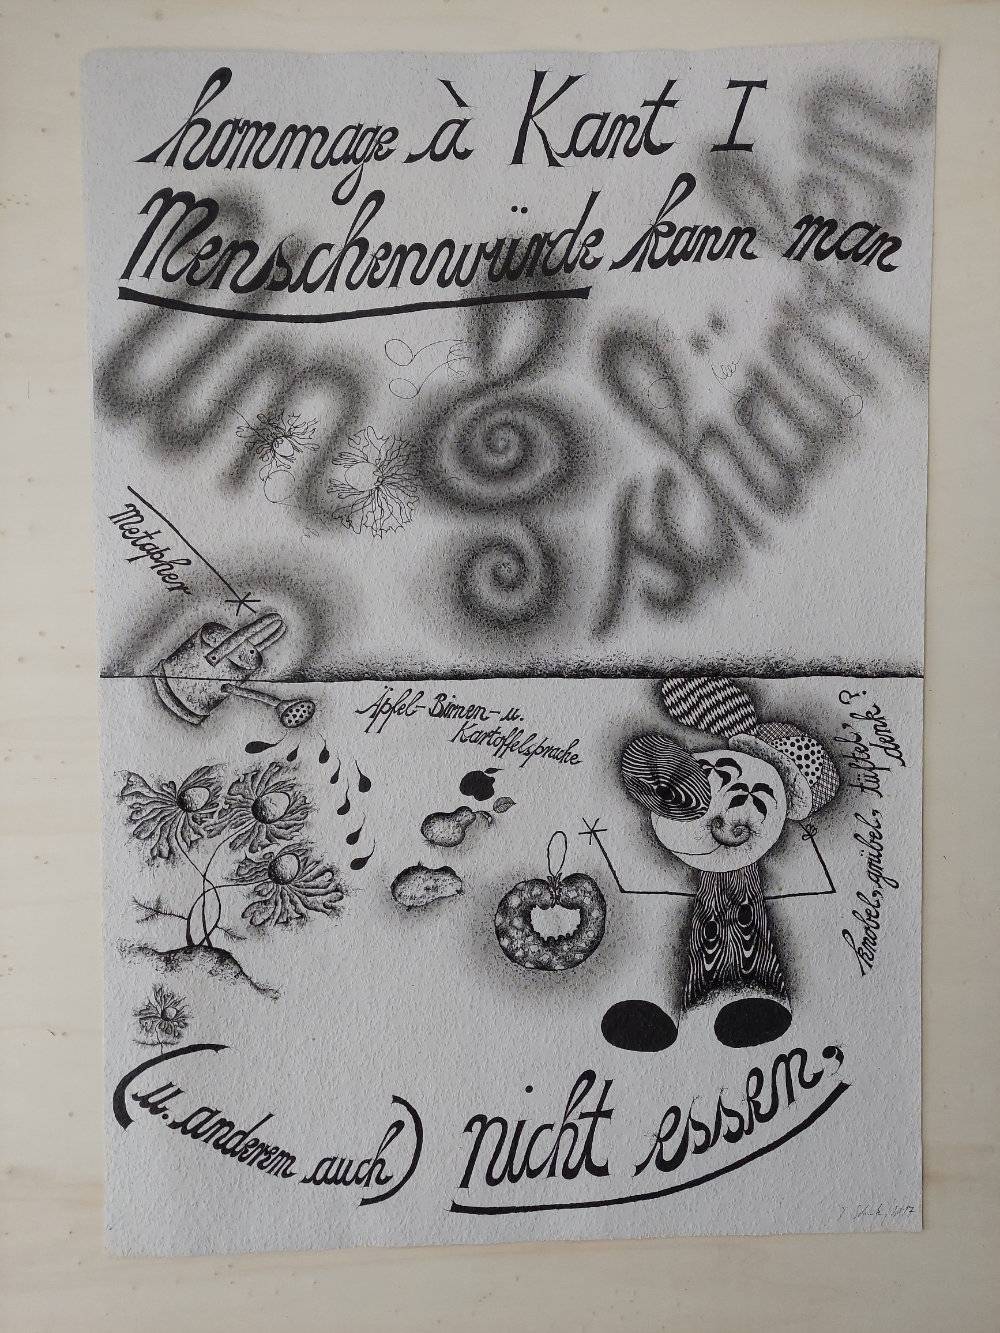 hommage à Kant I
Menschenwürde kann man
Metapher
Äpfel- Birnen- u.
Kartoffelsprache
knobel, grübel, tüftel,
denk?
(u. anderem auch) nicht essen,